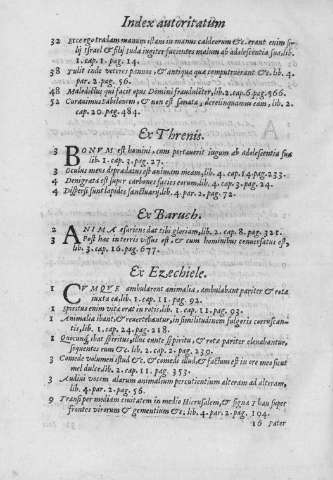 Index autoritatum
32 Et ergo tradam manum istam in manus caldeorum &c. erant enim filij
lij israel & filij iuda iugiter facientes malum ab adolescentia sua, lib.
1. cap. 1. pag. 14.
38 Tulit inde veteres pannos, & antiqua quæ computruerant &c. lib. 4.
par. 2. pag. 56.
48 Maledictus qui facit opus Domini fraudulenter, lib. 2. cap. 6 pag. 566.
52 Curauimus babilonem, & non est sanata, derelinquamus eam, lib. 2.
cap. 20. pag. 484.
Ex Threnis.
3 BONVM est homini, cum portauerit iugum ab adolescentia sua
lib. 1. cap. 3. pag. 27.
3 Oculus meus depradatus est animam meam, lib. 4. cap. 14 pag. 233.
4 Denigrata est super carbones facies eorum, lib. 4. cap. 3. pag. 24.
4 Dispersi sunt lapides sanctuarij, lib. 4. par. 2. pag. 72.
Ex Baruch.
2 ANIMA esuriens dat tibi gloriam, lib. 2. cap. 8. pag. 321.
3 Post hæc in terris visus est, & cum hominibus conuersatus est,
lib. 3. cap. 16. pag. 677.
Ex Ezechiele.
1 CVMQVE ambularent animalia, ambulabant pariter & rotæ
iuxta ea, lib. 1. cap. 11. pag. 92.
1 Spiritus enim vitæ erat in rotis, lib. 1. cap. 11. pag. 93.
1 Animalia ibant, & reuertebantur, in similitudinem fulguris corruscan-
tis, lib. 1. cap. 24. pag. 218.
1 Quecunq; ibat spiritus, illuc eunte spiritu, & rotæ pariter eleuabantur,
sequentes eum &c. lib. 2. cap. 2. pag. 239.
3 Comede volumen istud &c. & comedi illud, & factum est in ore meo sicut
mel dulce, lib. 2. cap. 11. pag. 353.
3 Audiui vocem alarum animalium percutientium alteram ad alteram,
lib. 4. par. 2. pag. 56.
9 Transi per mediam ciuitatem in medio Hierusalem, & signa Thau super
frontes virorum & gementium &c. lib. 4. par. 2. pag. 194.
16 Pater